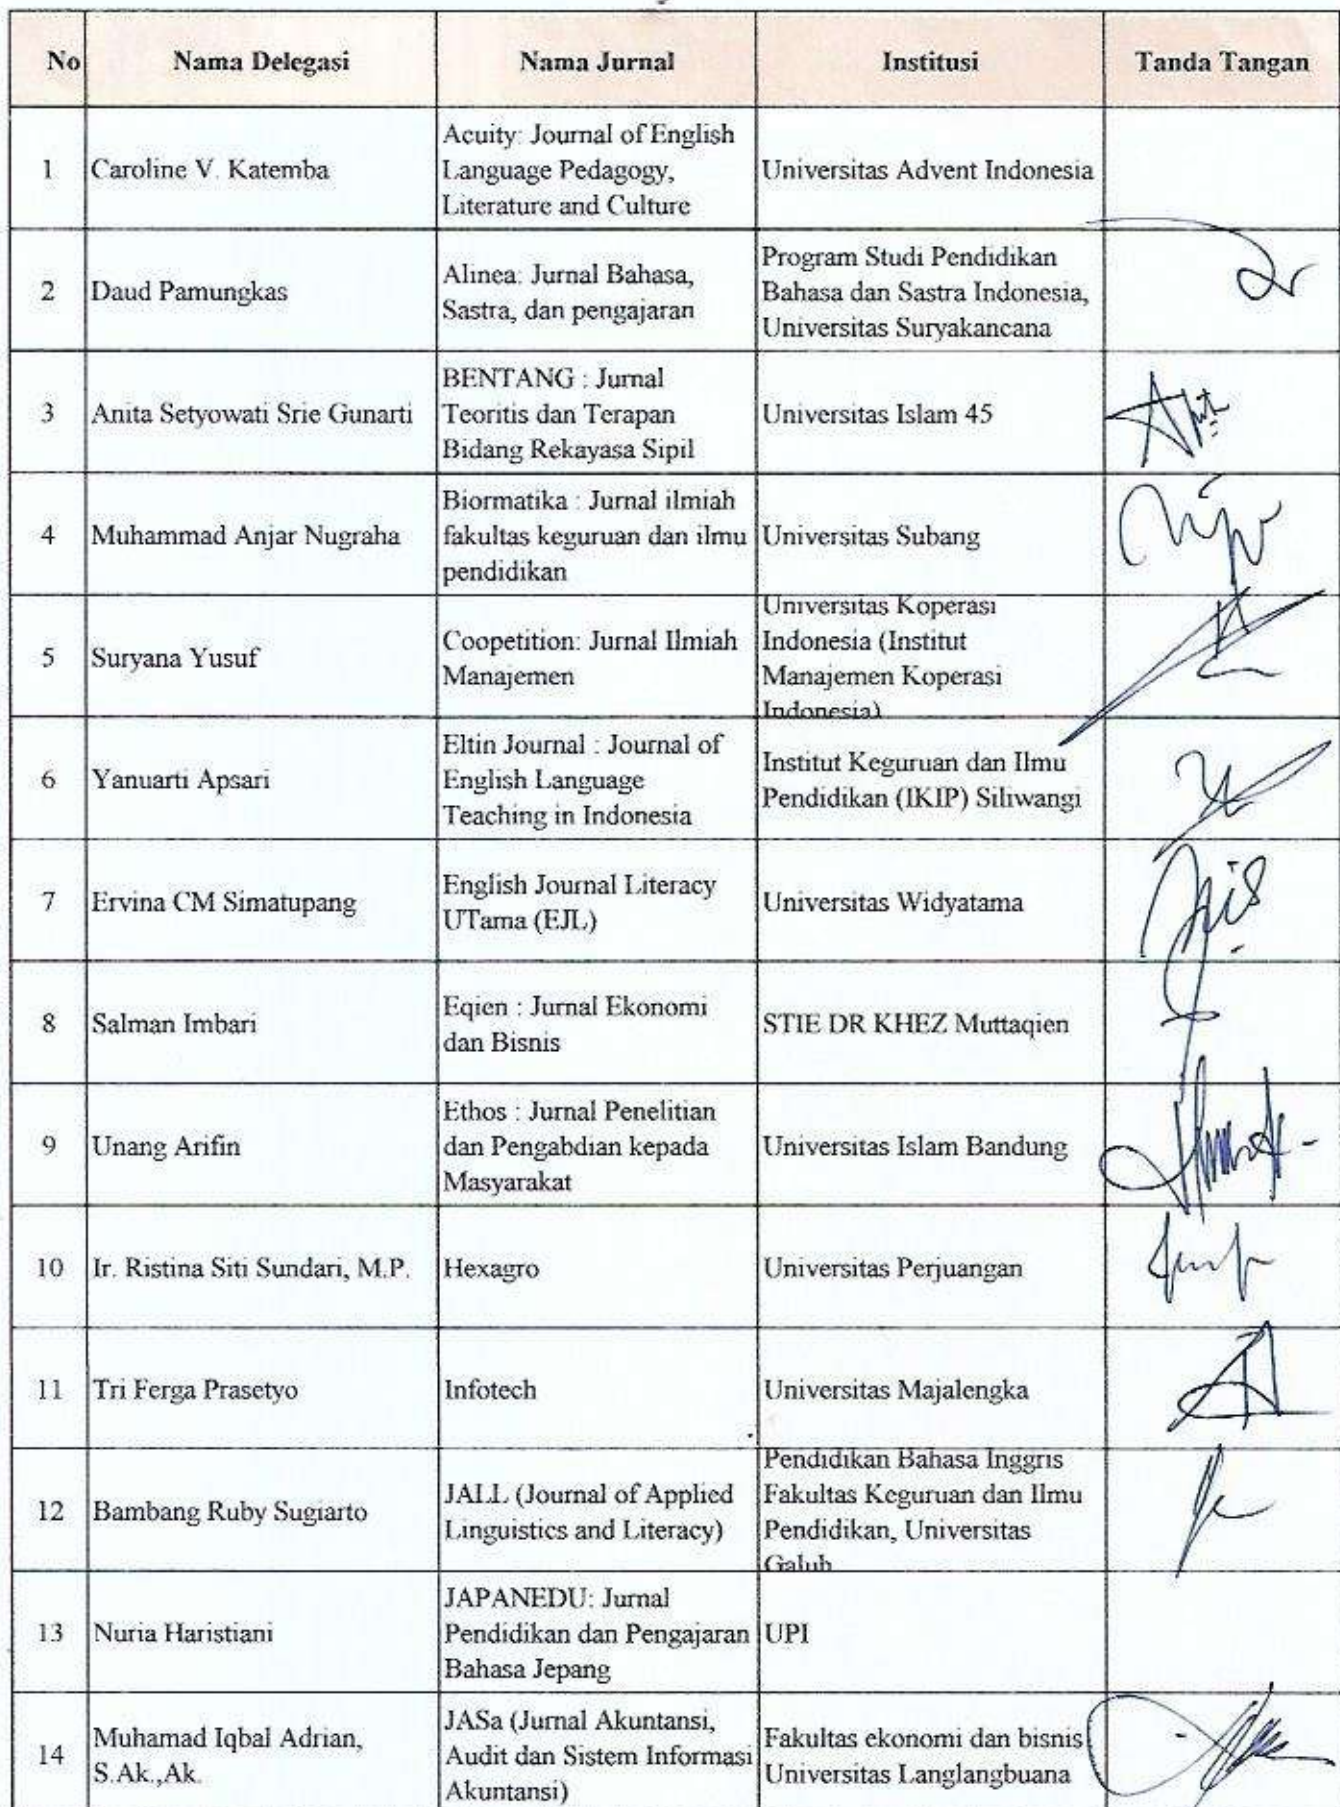 No Nama Delegasi Nama Jurnal Institusi Tanda Tangan
1 Caroline V. Katemba Acuity: Journal of English Language Pedagogy, Literature and Culture Universitas Advent Indonesia
2 Daud Pamungkas Alinea: Jurnal Bahasa, Sastra, dan pengajaran Program Studi Pendidikan Bahasa dan Sastra Indonesia, Universitas Suryakancana
3 Anita Setyowati Srie Gunarti BENTANG : Jurnal Teoritis dan Terapan Bidang Rekayasa Sipil Universitas Islam 45
4 Muhammad Anjar Nugraha Biormatika : Jurnal ilmiah fakultas keguruan dan ilmu pendidikan Universitas Subang
5 Suryana Yusuf Coopetition: Jurnal Ilmiah Manajemen Universitas Koperasi Indonesia (Institut Manajemen Koperasi Indonesia)
6 Yanuarti Apsari Eltin Journal : Journal of English Language Teaching in Indonesia Institut Keguruan dan Ilmu Pendidikan (IKIP) Siliwangi
7 Ervina CM Simatupang English Journal Literacy UTama (EJL) Universitas Widyatama
8 Salman Imbari Eqien : Jurnal Ekonomi dan Bisnis STIE DR KHEZ Muttaqien
9 Unang Arifin Ethos : Jurnal Penelitian dan Pengabdian kepada Masyarakat Universitas Islam Bandung
10 Ir. Ristina Siti Sundari, M.P. Hexagro Universitas Perjuangan
11 Tri Ferga Prasetyo Infotech Universitas Majalengka
12 Bambang Ruby Sugiarto JALL (Journal of Applied Linguistics and Literacy) Pendidikan Bahasa Inggris Fakultas Keguruan dan Ilmu Pendidikan, Universitas Galuh
13 Nuria Haristiani JAPANEDU: Jurnal Pendidikan dan Pengajaran Bahasa Jepang UPI
14 Muhamad Iqbal Adrian, S.Ak.,Ak. JASa (Jurnal Akuntansi, Audit dan Sistem Informasi Akuntansi) Fakultas ekonomi dan bisnis Universitas Langlangbuana